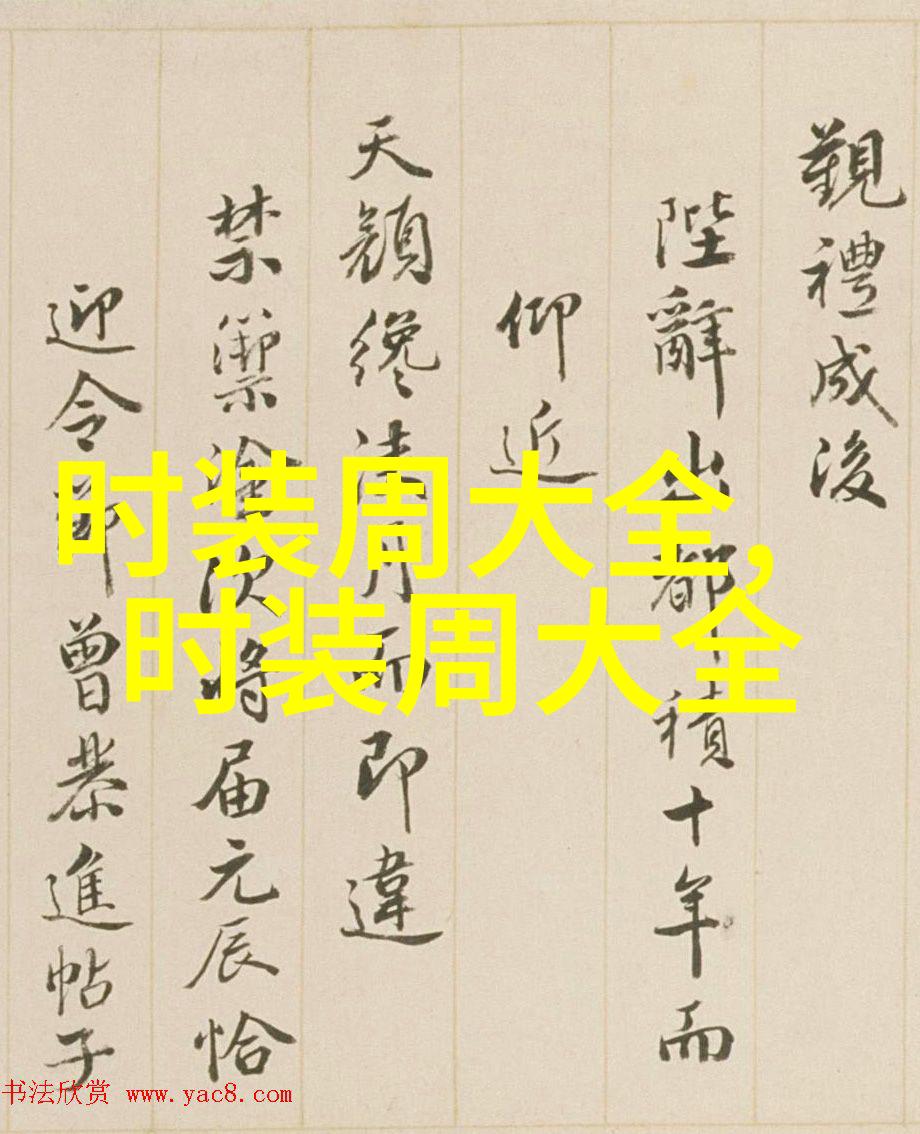 覲禮成後
陛辭出都積十年而
仰近
天顔纔浹月而即違
禁籞塗次將届元辰恰
迎令節曾恭進帖子
时装周大全,
时装周大全
书法欣赏 www.yac8.com